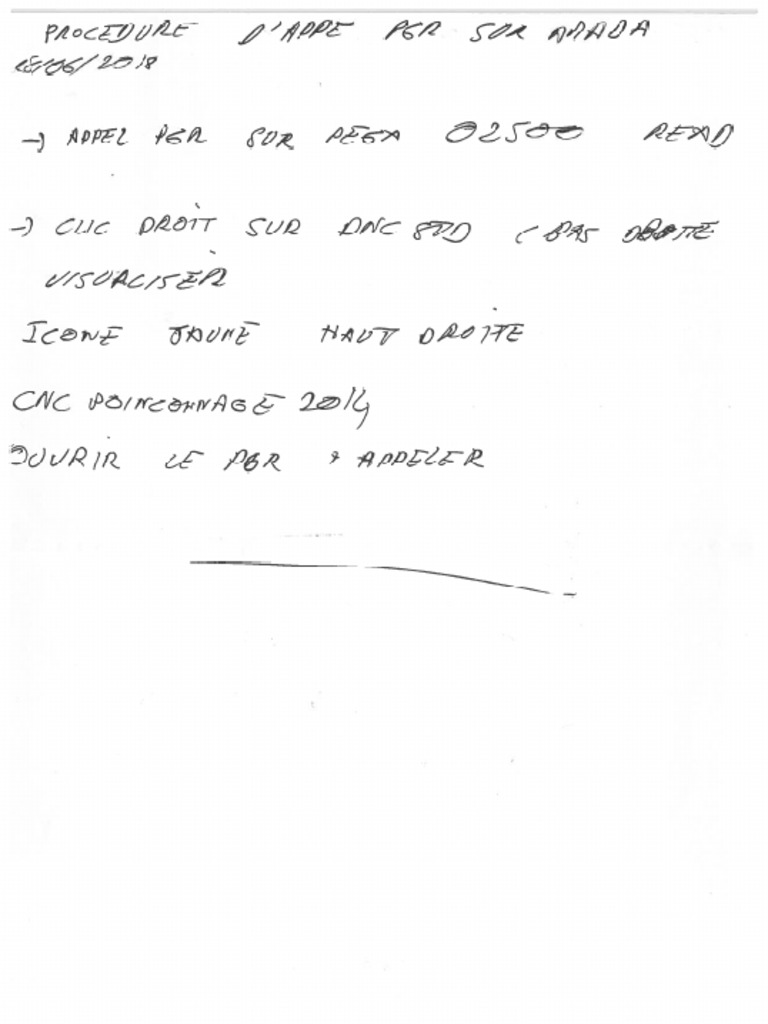 PROCEDURE D'APPE PGR SUR AMADA
18/06/2018
→ APPEL PGR SUR PEGA 02500 READ
→ CLIC DROIT SUR DNC STD ( BAS DROITE
VISUALISER
ICONE JAUNE HAUT DROITE
CNC POINCONNAGE 2014
OUVRIR LE PGR + APPELER